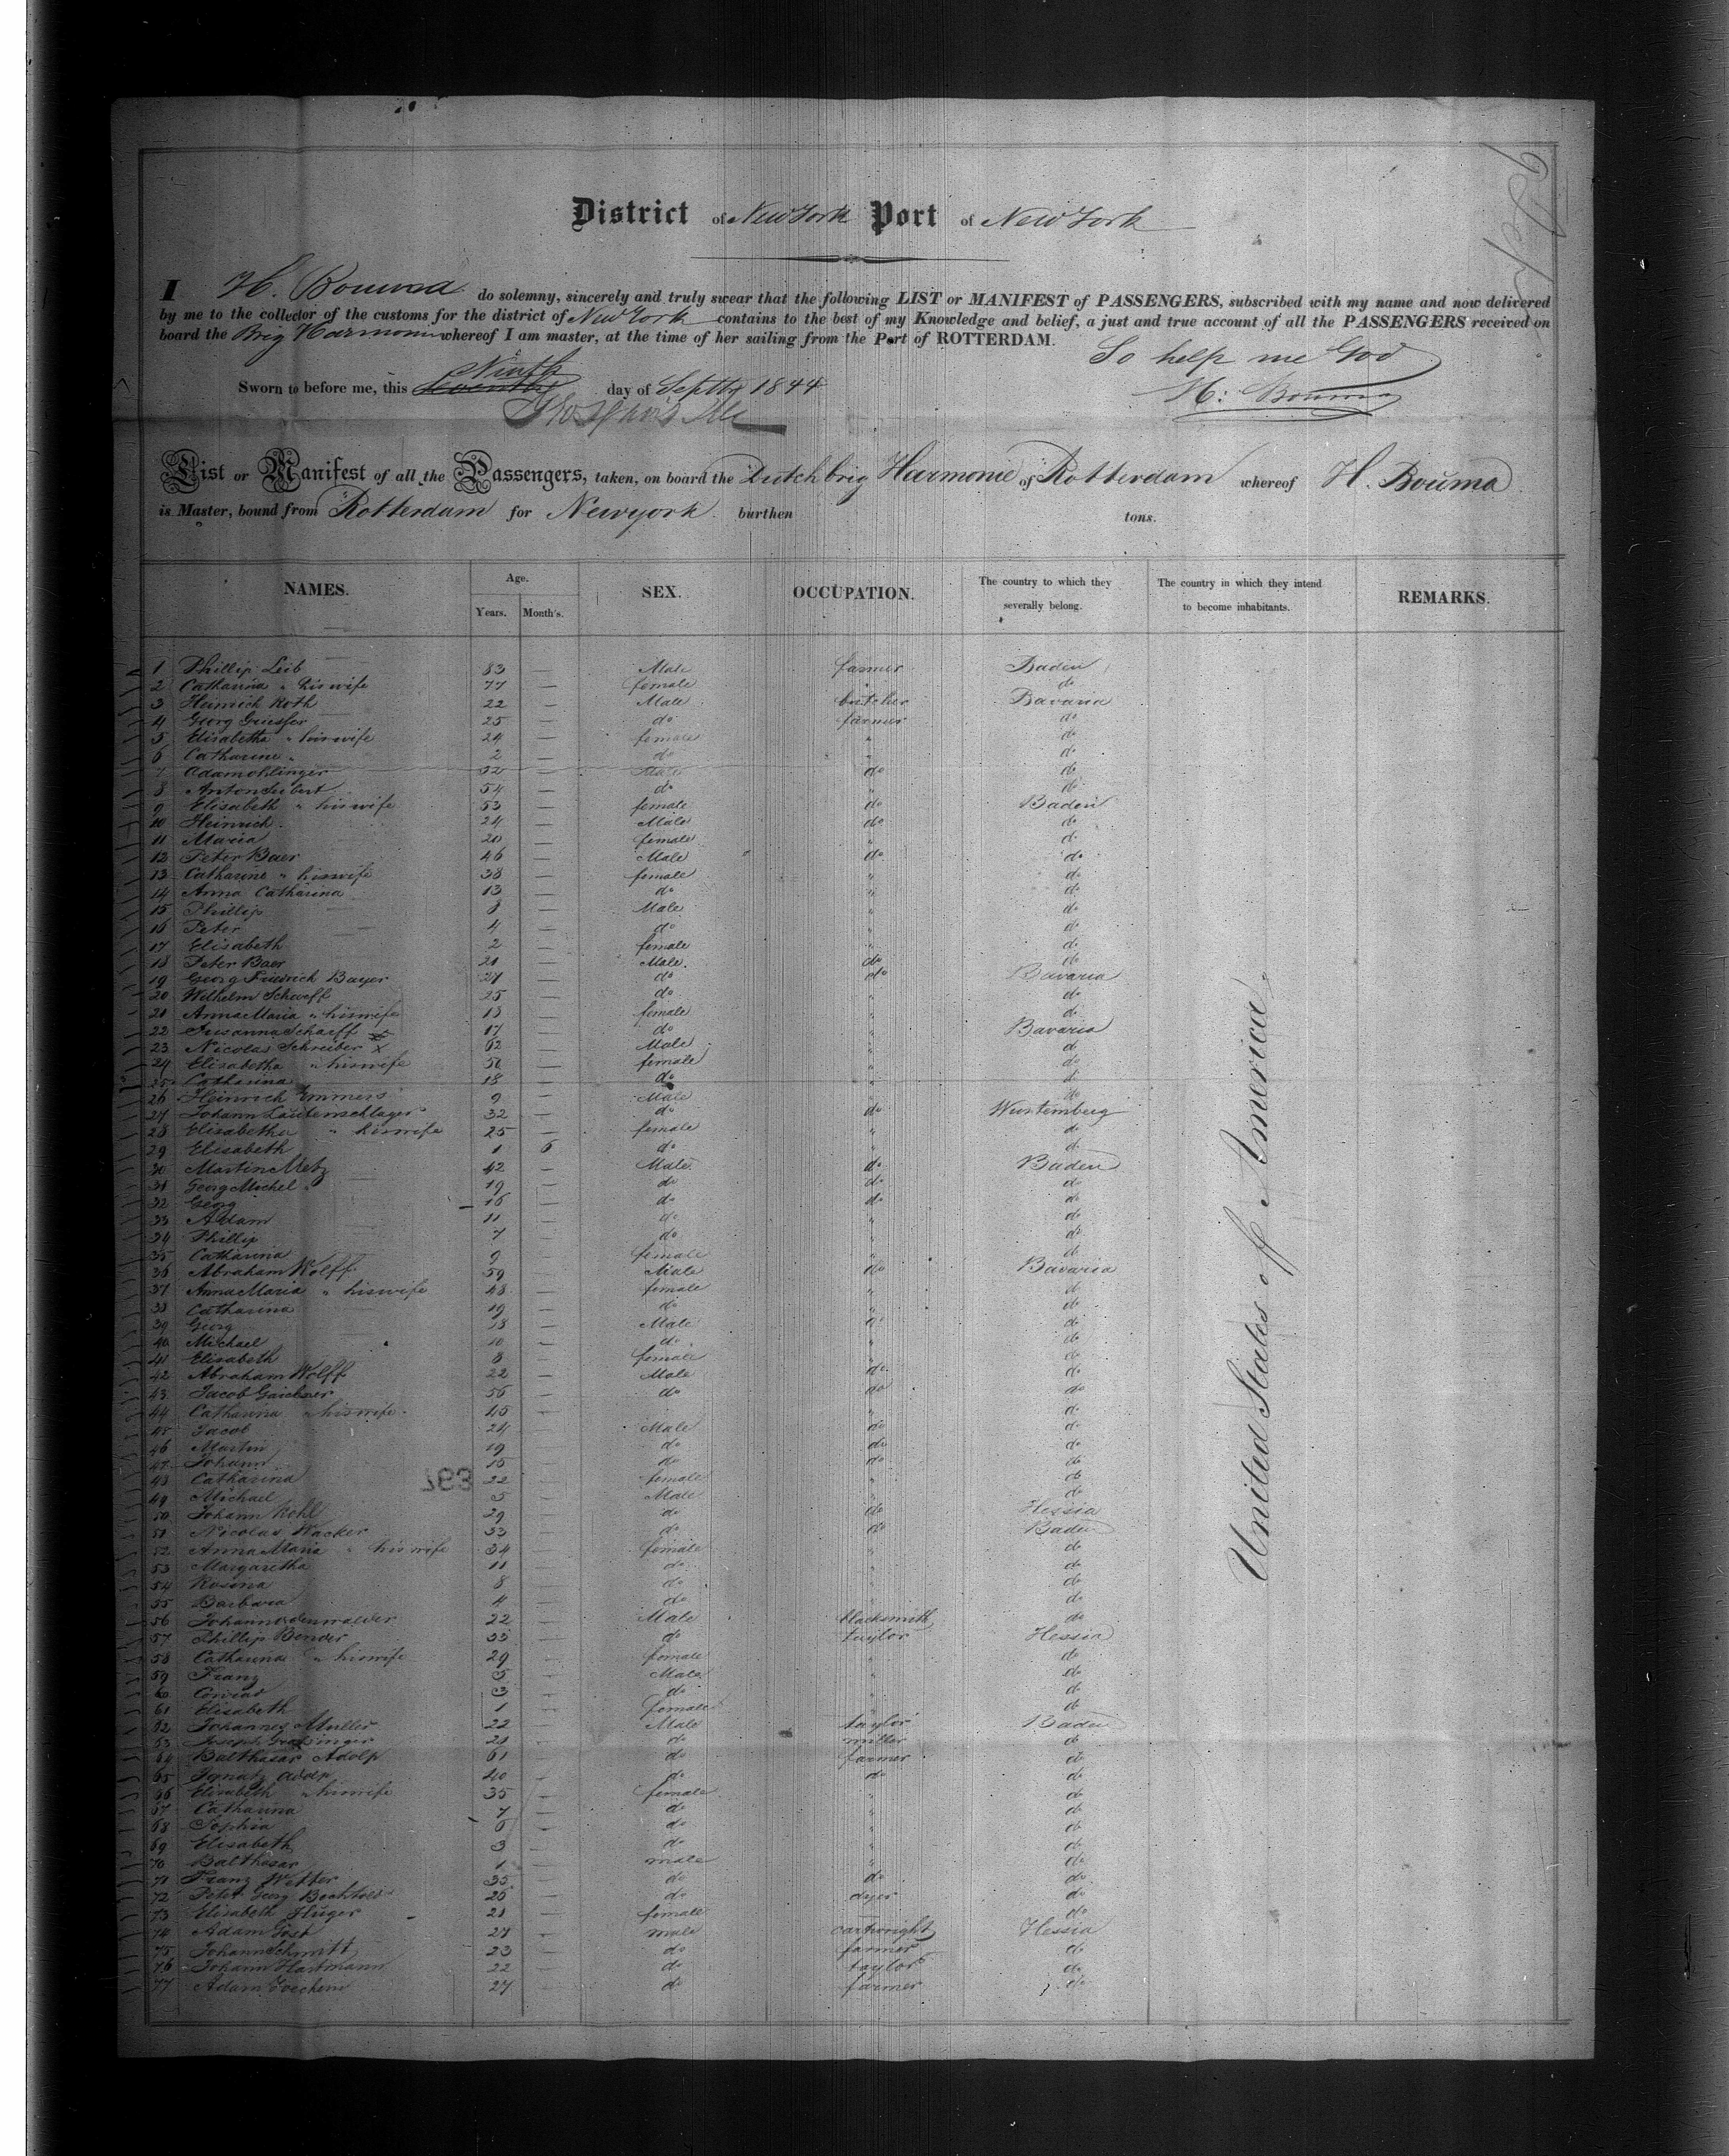 District of New York Port of New York
I H. Bouma do solemny, sincerely and truly swear that the following LIST or MANIFEST of PASSENGERS, subscribed with my name and now delivered
by me to the collector of the customs for the district of New York contains to the best of my Knowledge and belief, a just and true account of all the PASSENGERS received on
board the Brig Harmonie whereof I am master, at the time of her sailing from the Port of ROTTERDAM.
So help me God
Ninth
Sworn to before me, this day of Septbr 1844
H: Bouma
List or Manifest of all the Passengers, taken, on board the Dutch brig Harmonie of Rotterdam whereof H. Bouma
is Master, bound from Rotterdam for Newyork burthen tons.
NAMES. Age. Years. Month's. SEX. OCCUPATION. The country to which they severally belong. The country in which they intend to become inhabitants. REMARKS.
1 Phillip Leib 83 — Male farmer Baden
2 Catharina " his wife 77 — female " do
3 Heinrich Roth 22 — Male butcher Bavaria
4 Georg 25 — do farmer do
5 Elisabetha " his wife 24 — female " do
6 Catharine " 2 — do " do
7 Adam Ohlinger 32 — Male do do
8 Anton Seibert 54 — do " do
9 Elisabeth " his wife 53 — female do Baden
10 Heinrich 24 — Male do do
11 Maria 20 — female " do
12 Peter Baer 46 — Male do do
13 Catharine " his wife 38 — female " do
14 Anna Catharina 13 — do " do
15 Phillip 8 — Male " do
16 Peter 4 — do " do
17 Elisabeth 2 — female " do
18 Peter Baer 21 — Male do do
19 Georg Friedrich Bayer 27 — do do Bavaria
20 Wilhelm Scharff 25 — do " do
21 Anna Maria " his wife 18 — female " do
22 Susanna Scharff 17 — do " Bavaria
23 Nicolas Schreiber x 62 — Male " do
24 Elisabetha " his wife — female " do
25 Catharina 18 — do " do
26 Heinrich Emmers 9 — Male " do
27 Johann Lautenschlager 32 — do do Wurtemberg
28 Elisabetha " his wife 25 — female " do
29 Elisabeth 1 6 do " do
30 Martin Metz 42 — Male do Baden
31 Georg Michel " 19 — do do do
32 Georg 16 — do do do
33 Adam 11 — do " do
34 Phillip 7 — do " do
35 Catharina 9 — female " do
36 Abraham Wolff 59 — Male do Bavaria
37 Anna Maria " his wife 48 — female " do
38 Catharina 19 — do " do
39 Georg 18 — Male do do
40 Michael 10 — do " do
41 Elisabeth 8 — female " do
42 Abraham Wolff 22 — Male do do
43 Jacob 56 — do do do
44 Catharina " his wife 45 — " do
45 Jacob 24 — Male do do
46 Martin 19 — do do do
47 Johann 15 — do do do
48 Catharina 22 — female " do
49 Michael 5 — Male " do
50 Johann Kohl 29 — do do Hessia
51 Nicolas Wacker 33 — do do Baden
52 Anna Maria " his wife 34 — female " do
53 Margaretha 11 — do " do
54 Rosina 8 — do " do
55 Barbara 4 — do " do
56 Johann Odenwalder 22 — Male blacksmith do
57 Phillip Bender 33 — do taylor Hessia
58 Catharina " his wife 29 — female " do
59 Franz 5 — Male " do
60 Conrad 3 — do " do
61 Elisabeth 1 — female " do
62 Johannes Muller 22 — Male taylor Baden
63 Joseph 21 — do miller do
64 Balthasar Adolp 61 — do farmer do
65 Ignatz Adolp 40 — do do do
66 Elisabeth " his wife 35 — female " do
67 Catharina 7 — do " do
68 Sophia 6 — do " do
69 Elisabeth 3 — do " do
70 Balthasar 1 — male " do
71 Franz Vetter 35 — do do do
72 Peter Georg Bechtold 25 — do dyer do
73 Elisabeth Huger 21 — female do
74 Adam Jost 27 — male cartwright Hessia
75 Johann Schmitt 23 — do farmer do
76 Johann Hartmann 22 — do taylor do
77 Adam Joechem 27 — do farmer do
United States off America
763